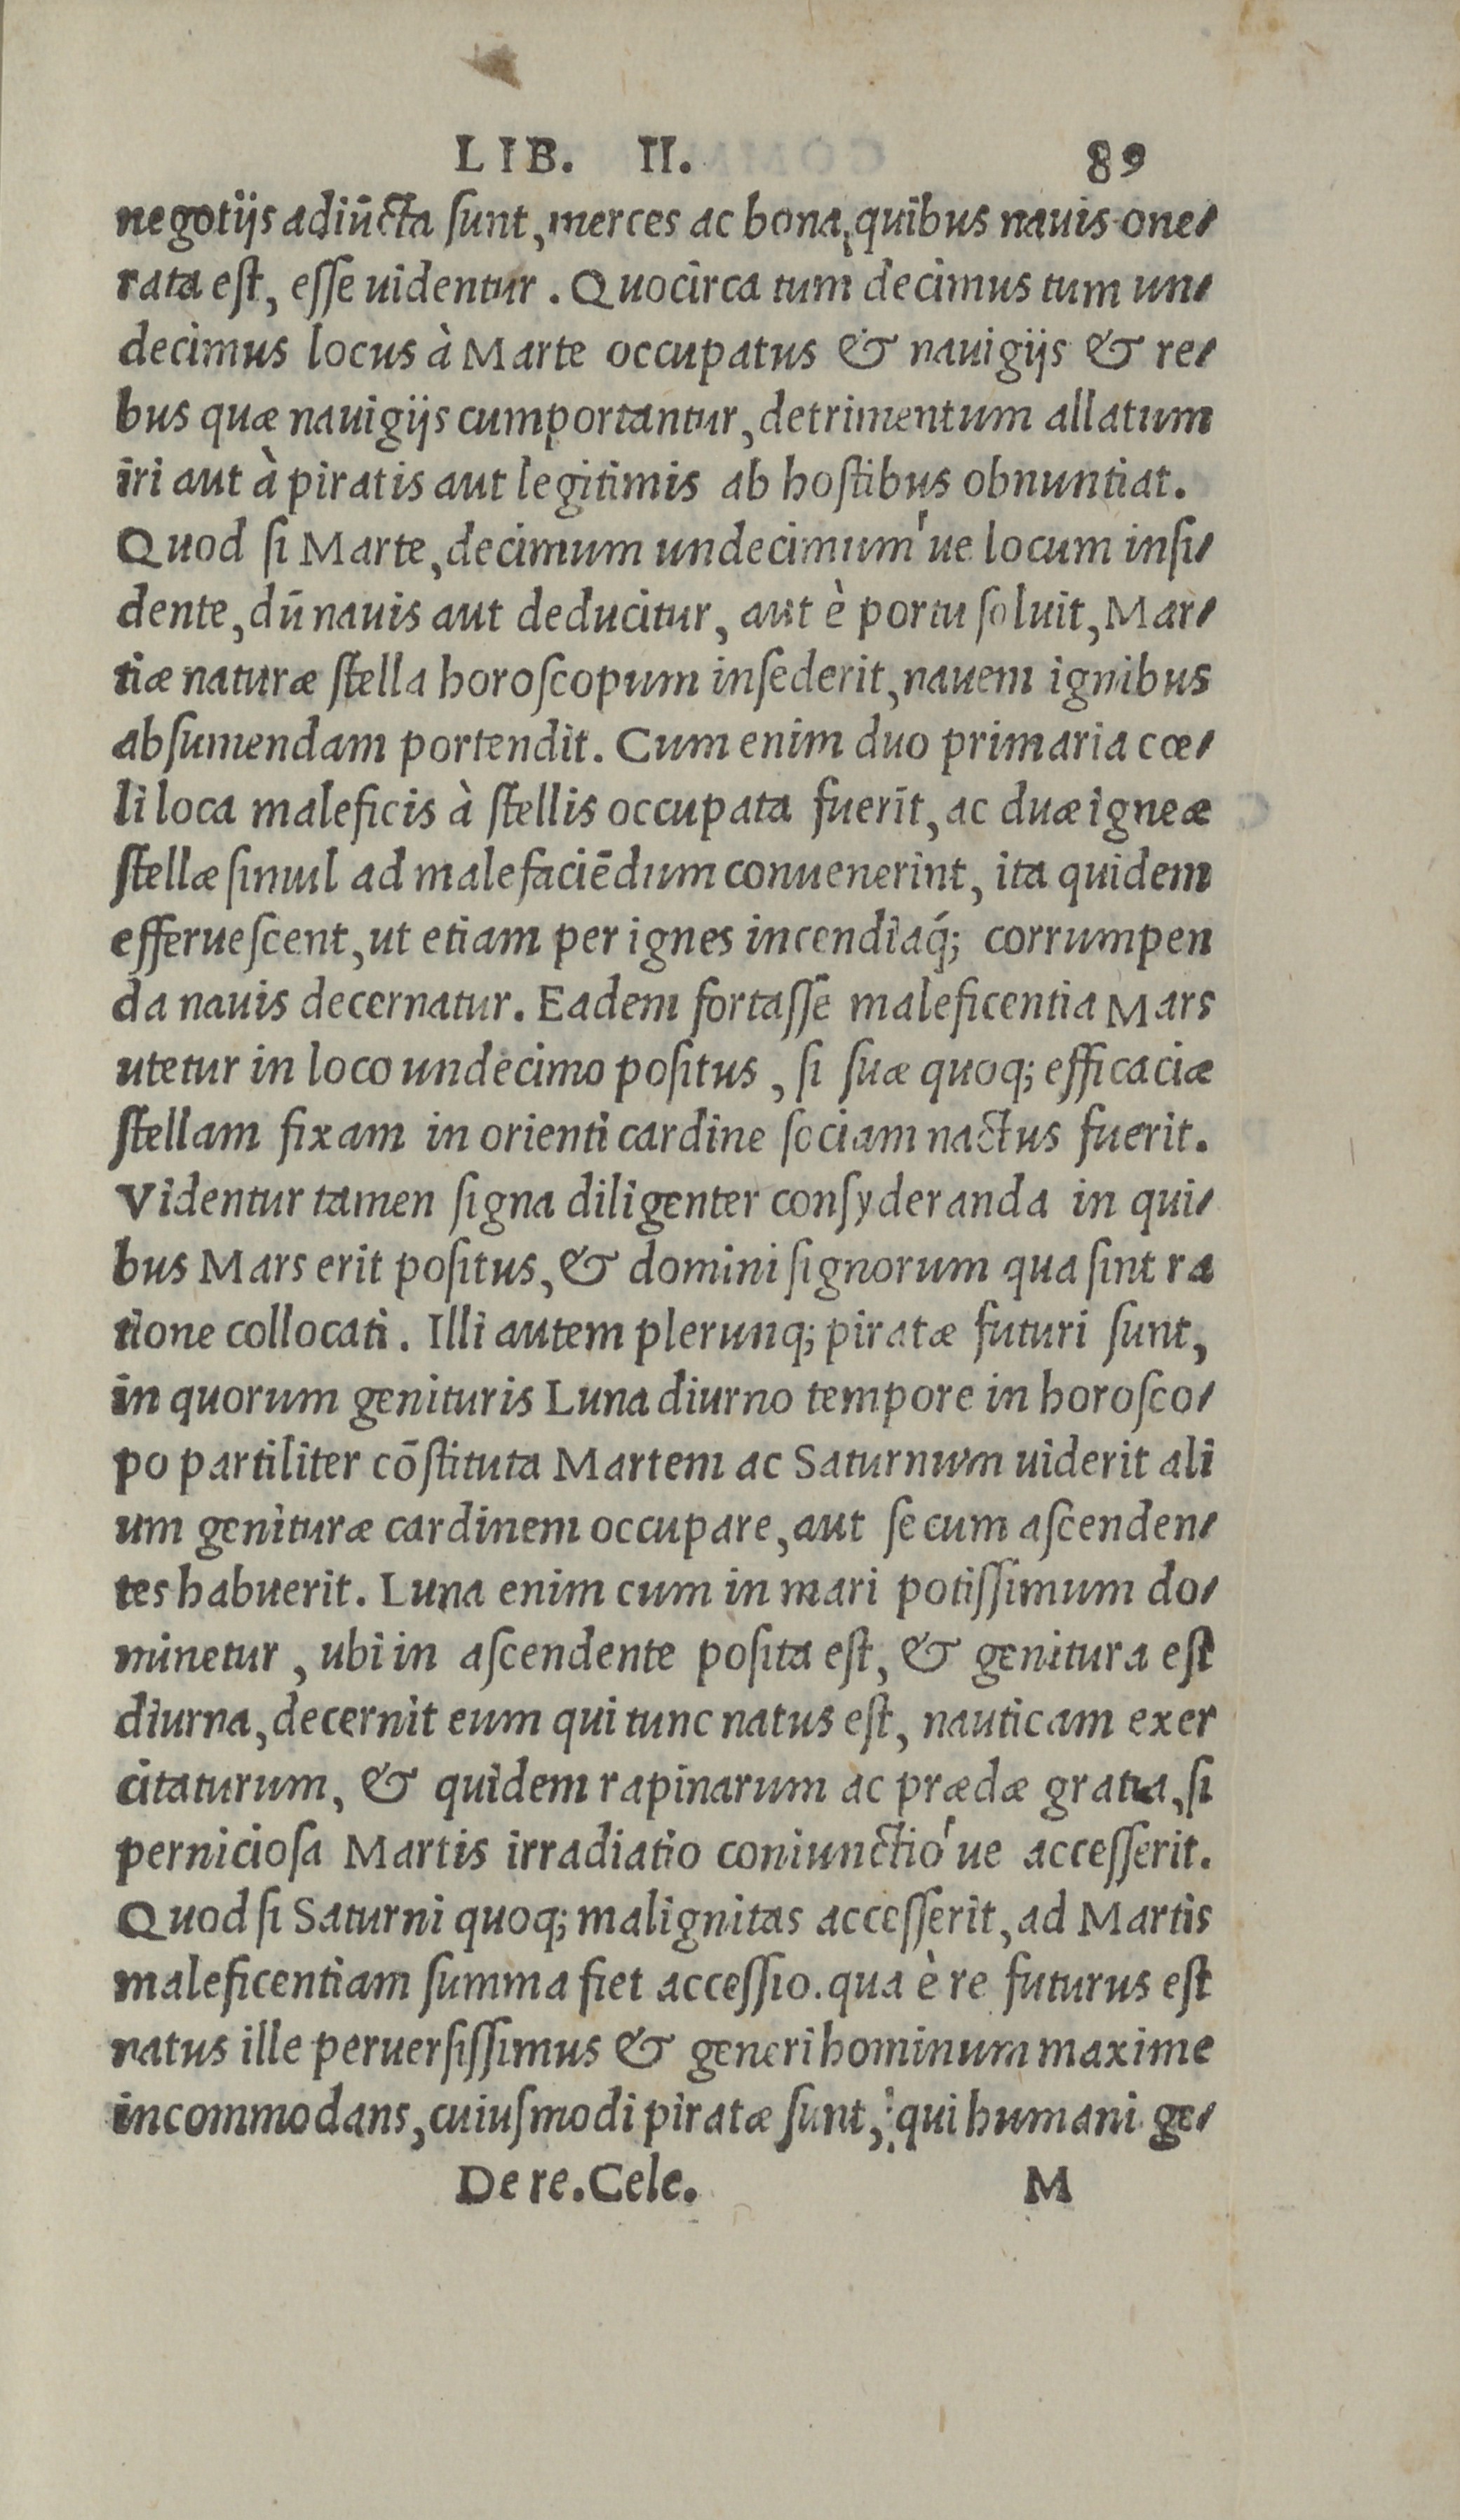 LIB. II. 89
negotijs adiūcta ſunt, merces ac bona, quibus nauis one-
rata eſt, eſſe uidentur. Quocirca tum decimus tum un-
decimus locus à Marte occupatus & nauigijs & re-
bus quæ nauigijs cumportantur, detrimentum allatum
iri aut à piratis aut legitimis ab hoſtibus obnuntiat.
Quod ſi Marte, decimum undecimum'ue locum inſi-
dente, dū nauis aut deducitur, aut è portu ſoluit, Mar-
tiæ naturæ ſtella horoſcopum inſederit, nauem ignibus
abſumendam portendit. Cum enim duo primaria cœ-
li loca maleficis à ſtellis occupata fuerīt, ac duæ igneæ
ſtellæ ſimul ad malefaciēdum conuenerint, ita quidem
efferueſcent, ut etiam per ignes incendiaq́; corrumpen
da nauis decernatur. Eadem fortaſſe maleficentia Mars
utetur in loco undecimo poſitus, ſi ſuæ quoq; efficaciæ
ſtellam fixam in orienti cardine ſociam nactus fuerit.
Videntur tamen ſigna diligenter conſyderanda in qui-
bus Mars erit poſitus, & domini ſignorum qua ſint ra
tione collocati. Illi autem plerunq; piratæ futuri ſunt,
in quorum genituris Luna diurno tempore in horoſco-
po partiliter cōſtituta Martem ac Saturnum uiderit ali
um genituræ cardinem occupare, aut ſecum aſcenden-
tes habuerit. Luna enim cum in mari potiſſimum do-
minetur, ubi in aſcendente poſita eſt, & genitura eſt
diurna, decernit eum qui tunc natus eſt, nauticam exer
citaturum, & quidem rapinarum ac prædæ gratia, ſi
pernicioſa Martis irradiatio coniunctio'ue acceſſerit.
Quod ſi Saturni quoq; malignitas acceſſerit, ad Martis
maleficentiam ſumma fiet acceſſio. qua è re futurus eſt
natus ille peruerſiſſimus & generi hominum maxime
incommodans, cuiuſmodi piratæ ſunt, qui humani ge-
De re. Cele. M